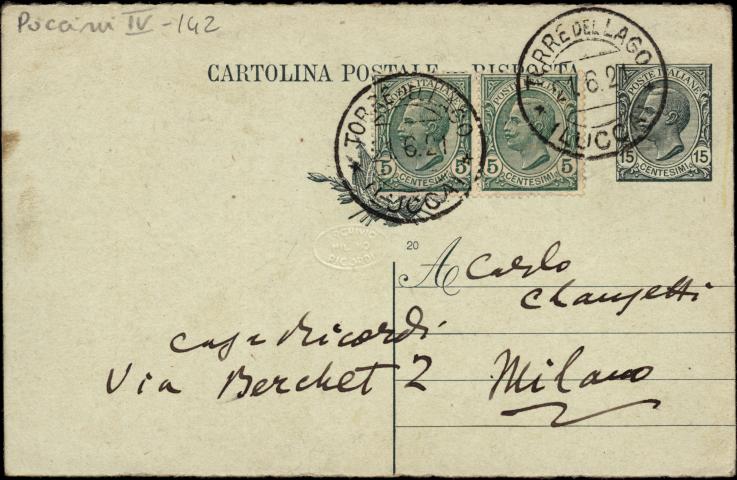 Puccini IV - 142
CARTOLINA POSTALE — RISPOSTA
TORRE DEL LAGO
6.21
(LUCCA)
TORRE DEL LAGO
6.21
(LUCCA)
POSTE ITALIANE
5 5
CENTESIMI
POSTE ITALIANE
5 5
CENTESIMI
POSTE ITALIANE
15 15
CENTESIMI
ARCHIVIO
RICORDI
20
A Carlo
Clausetti
Casa Ricordi
Via Berchet 2
Milano